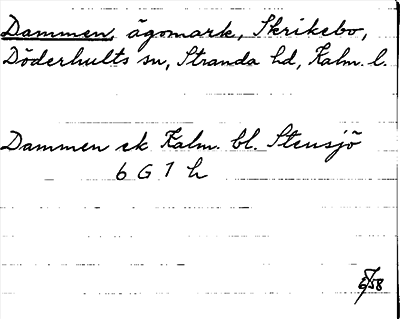 Dammen, ägomark, Skrikebo,
Döderhults sn, Stranda hd, Kalm. l.
Dammen ek Kalm. bl. Stensjö
6 G 7 h